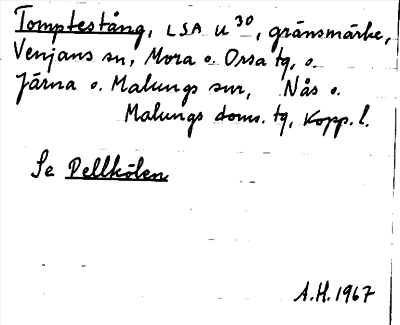 Tomptestång, LSA U 30, gränsmärke,
Venjans sn, Mora o. Orsa tg, o.
Järna o. Malungs snr, Nås o.
Malungs doms. tg, Kopp. l.
Se Pellkölen
A.H. 1967